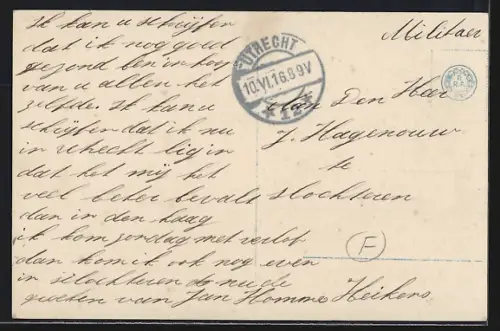 Ik kan u schrijfen
dat ik nog goed
gezond ben in hoop
van u allen het
zelfde. Ik kan u
schrijfen dat ik nu
in utrecht lig en
dat het mij het
veel beter bevalt
dan in den haag
ik kom zondag met verlof
dan kom ik ook nog even
in slochteren de
groeten van Jan Homme Heikens
UTRECHT
10.VI.16.8-9V
Militaer
Aan Den Heer
J. Hagenouw
te
slochteren
F